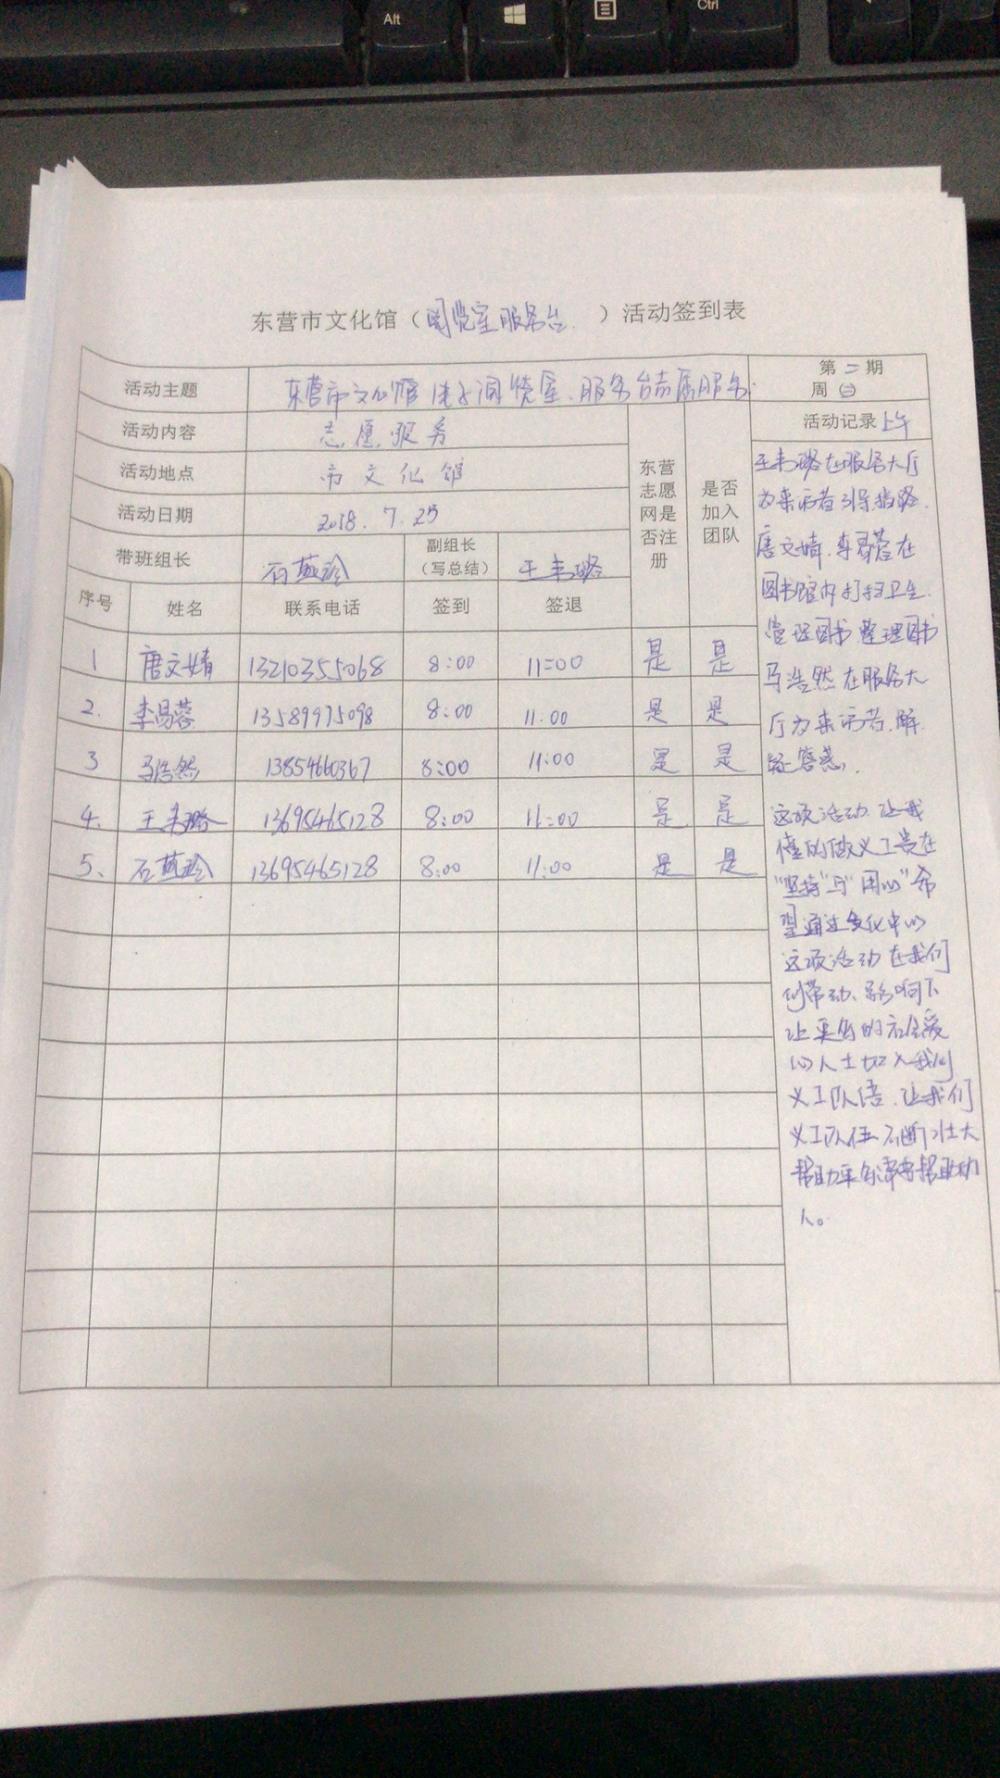 Alt
Ctrl
东营市文化馆（阅览室服务台）活动签到表
活动主题 东营市文化馆 阅览室、服务台志愿服务
第二期
周㊂
活动内容 志愿服务
活动记录 上午
活动地点 市文化馆
活动日期 2018.7.25
东营志愿网是否注册
是否加入团队
带班组长 石燕玲 副组长（写总结） 王韦璐
序号 姓名 联系电话 签到 签退
1 唐文婧 13210355068 8:00 11:00 是 是
2. 李昌蓉 13589975098 8:00 11:00 是 是
3 马浩然 13854660367 8:00 11:00 是 是
4. 王韦璐 13695465128 8:00 11:00 是 是
5、 石燕玲 13695465128 8:00 11:00 是 是
王韦璐在服务大厅
为来访者引导指路.
唐文婧.李昌蓉在
图书馆内打扫卫生.
管理图书 整理图书
马浩然在服务大
厅为来访者.解
疑答惑.
这项活动.让我
懂的做义工贵在
"坚持"与"用心"希
望通过文化中心
这项活动在我们
的带动、影响下
让更多的社会爱
心人士加入我们
义工队伍.让我们
义工队伍不断壮大
帮助更多需要帮助的
人。